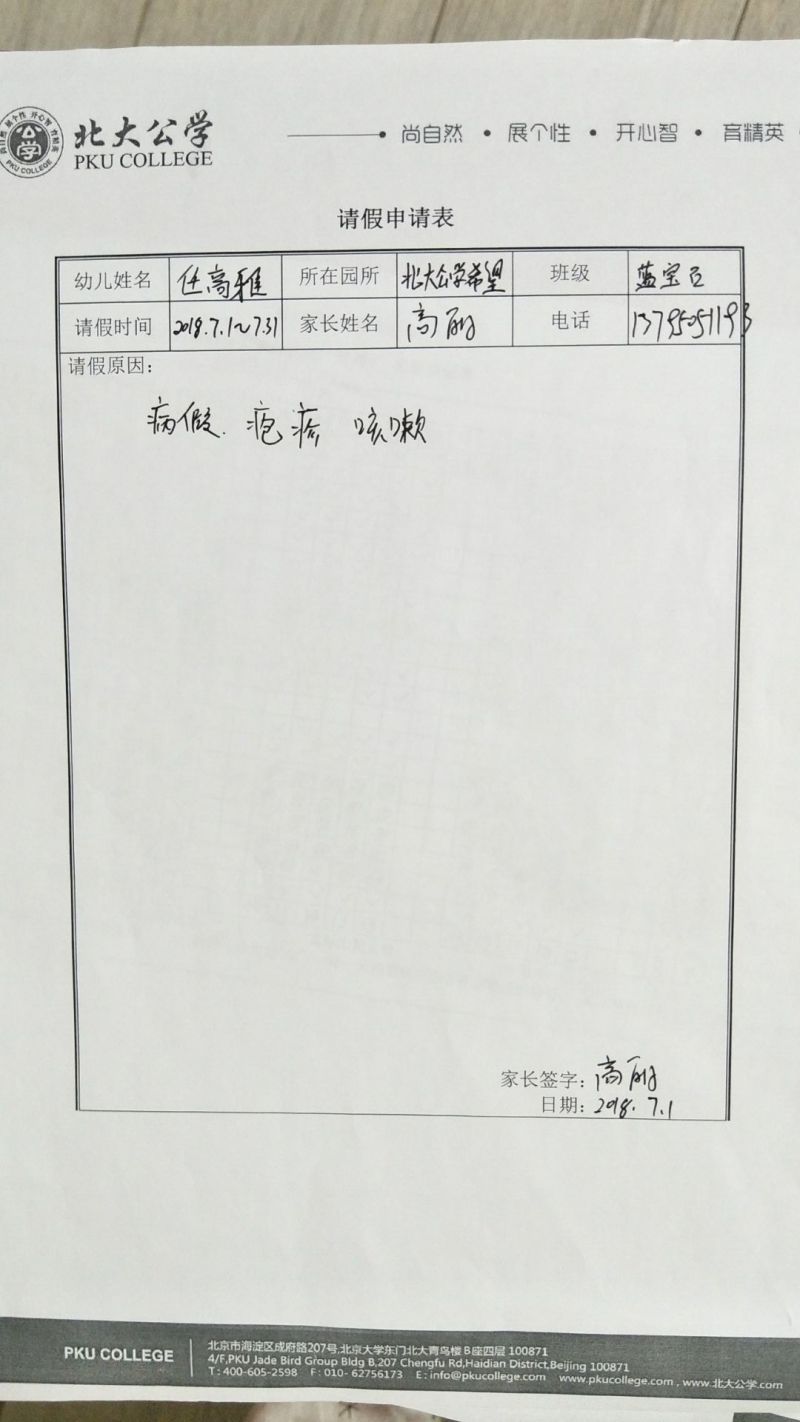 北大公学
PKU COLLEGE
尚自然 • 展个性 • 开心智 • 育精英
请假申请表
幼儿姓名 任高雅 所在园所 北大公学希望 班级 蓝宝石
请假时间 2018.7.1~7.31 家长姓名 高丽 电话 13795051193
请假原因:
病假. 疱疹 咳嗽
家长签字: 高丽
日期: 2018.7.1
PKU COLLEGE
北京市海淀区成府路207号,北京大学东门北大青鸟楼B座四层 100871
4/F,PKU Jade Bird Group Bldg B,207 Chengfu Rd,Haidian District,Beijing 100871
T : 400-605-2598 F : 010- 62756173 E : info@pkucollege.com www.pkucollege.com , www.北大公学.com